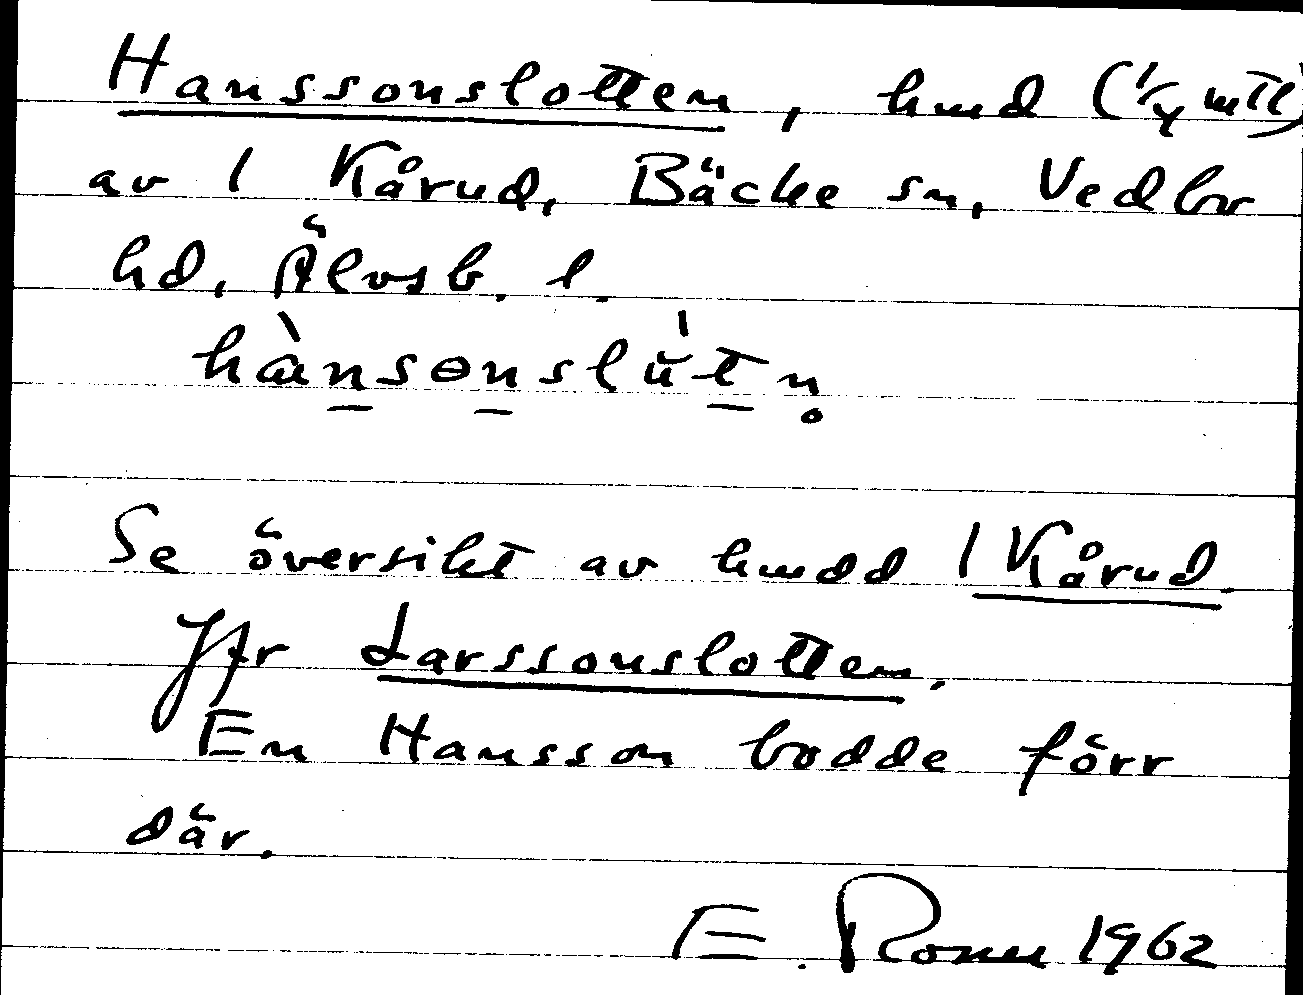 Hanssonslotten, hmd (1/4 mtl)
av 1 Kårud, Bäcke sn, Vedbo
hd, Älvsb. l.
hànsɵnslu̇̆tn̥
Se översikt av hmdd 1 Kårud.
Jfr Larssonslotten.
En Hansson bodde förr
där.
E. 1962